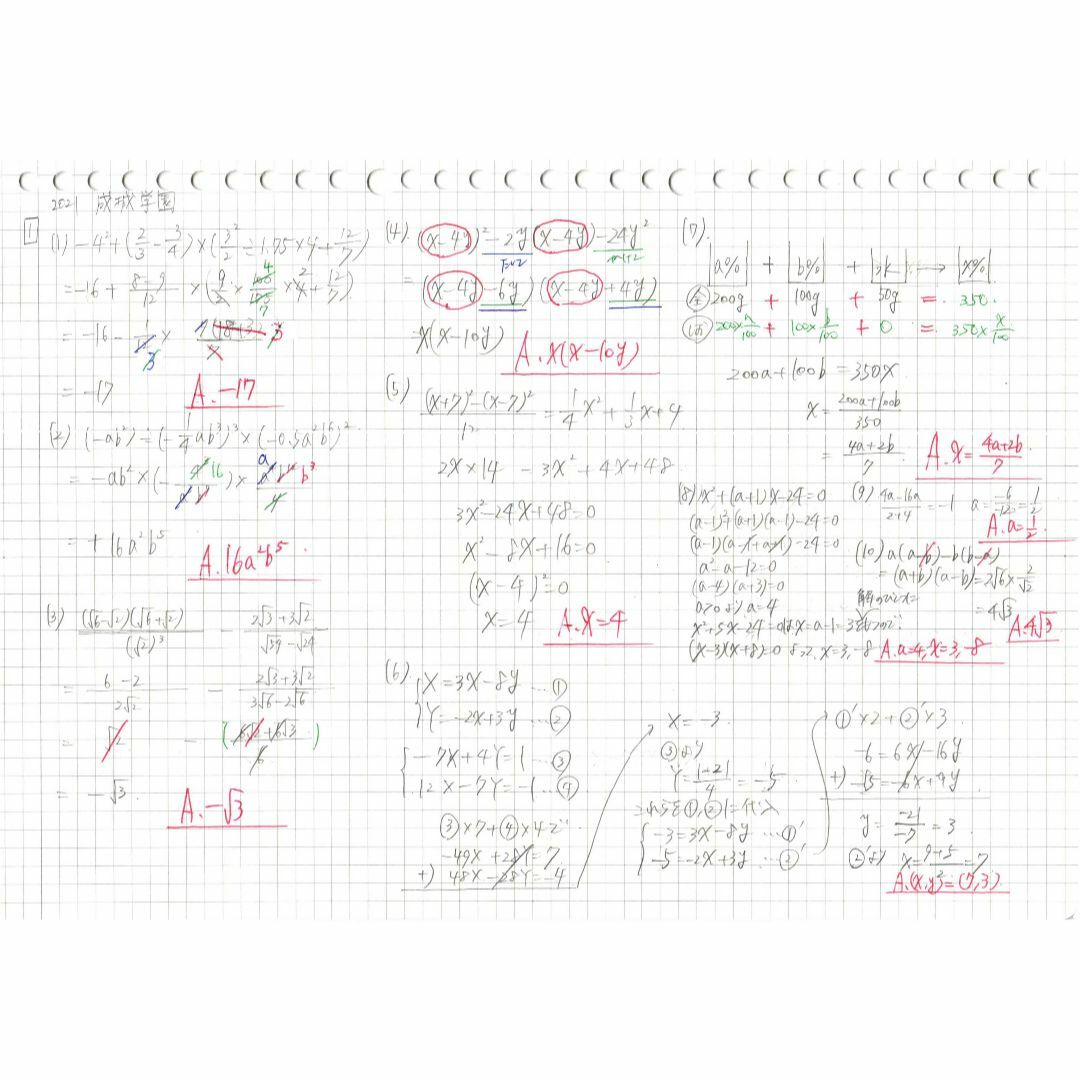 2021 成城学園
1
(1) -4²+(2/3-3/4)×(3²/2÷1.75×4+12/7)
=-16+ 8-9/12 ×(9/2×
= -16-
= -17
A. -17
(2) (-ab²)÷(-1/4ab³)³×(-0.5a²b⁶)²
= +16a²b⁵
A. 16a²b⁵
(3) (√6-√2)(√6+√2)/(√2)³ - 2√3+3√2/√54-√24
= 6-2/2√2 - 2√3+3√2/3√6-2√6
= -√3
A. -√3
(4) (x-4y)²-2y(x-4y)-24y²
= (x-4y-6y)(x-4y+4y)
x(x-10y)
A. x(x-10y)
(5) (x+7)²-(x-7)²/12=1/4x²+1/3x+4
2x×14 = 3x²+4x+48
3x²-24x+48=0
x²-8x+16=0
(x-4)²=0
x=4
A. x=4
(6) X=3x-8y …①
Y=-2x+3y …②
-7X+4Y=1 …③
12X-7Y=-1 …④
③×7+④×4で
-49X+28Y=7
+) 48X-28Y=-4
X=-3
③より
Y=1-21/4=-5
これらを①,②に代入
-3=3x-8y …①'
-5=-2x+3y …②'
①'×2+②'×3
-6=6x-16y
+) -15=-6x+9y
y=-21/-7=3
②'より x=9+5/2=7
A. (x,y)=(7,3)
(7)
a% + b% + 水 → x%
全 200g + 100g + 50g = 350.
200×a/100 + 100×b/100 + 0 = 350×x/100
200a+100b=350x
x=200a+100b/350
= 4a+2b/7
A. x=4a+2b/7
(8) x²+(a+1)x-24=0
(a-1)²+(a+1)(a-1)-24=0
(a-1)(a-1+a+1)-24=0
a²-a-12=0
(a-4)(a+3)=0
a>0より a=4
x²+5x-24=0はx=a-1=3を
(x-3)(x+8)=0 よって x=3,-8
A. a=4, x=3,-8
(9) 4a-16a/2+4=-1 a=-6/-12=1/2
A. a=1/2
(10) a(a-b)-b(b-a)
=(a+b)(a-b)=2√6×2/√2
=4√3
A. 4√3